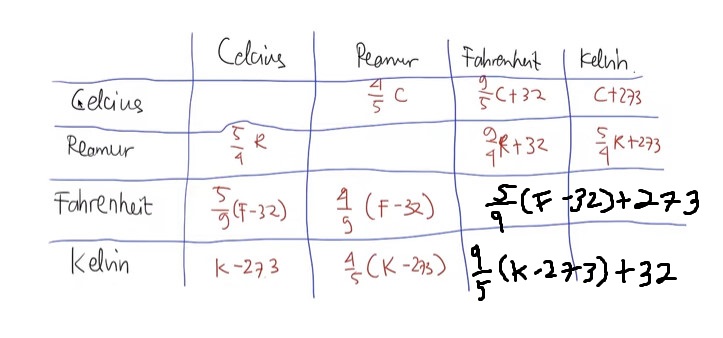 Celcius Reamur Fahrenheit Kelvin.
Celcius 4/5 C 9/5 C+32 C+273
Reamur 5/4 R 9/4 R+32 5/4 R+273
Fahrenheit 5/9 (F-32) 4/9 (F-32) 5/9 (F-32)+273
Kelvin K-273 4/5 (K-273) 9/5 (K-273)+32